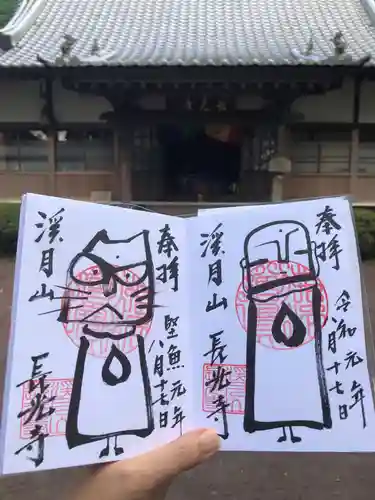 奉拝
令和元年
八月十七日
溪月山
長光寺
奉拝
堅魚元年
八月十七日
溪月山
長光寺